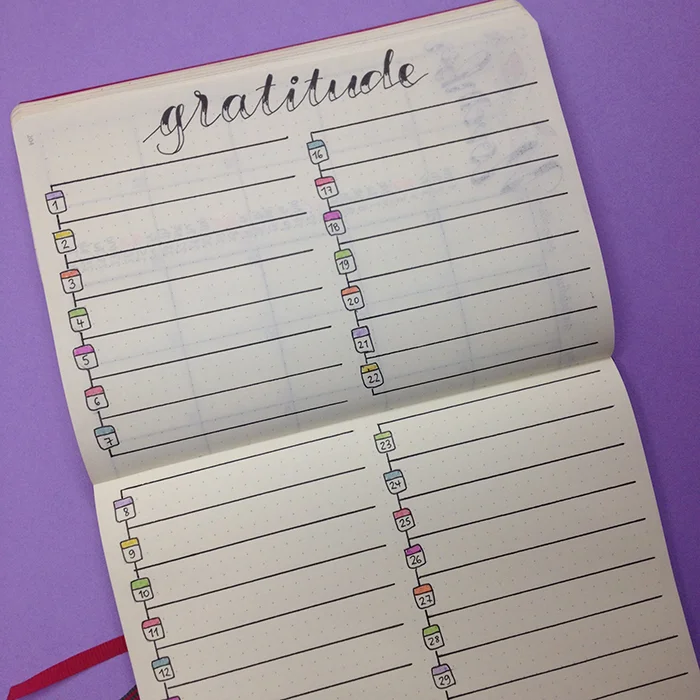 gratitude
1
2
3
4
5
6
7
16
17
18
19
20
21
22
8
9
10
11
12
23
24
25
26
27
28
29